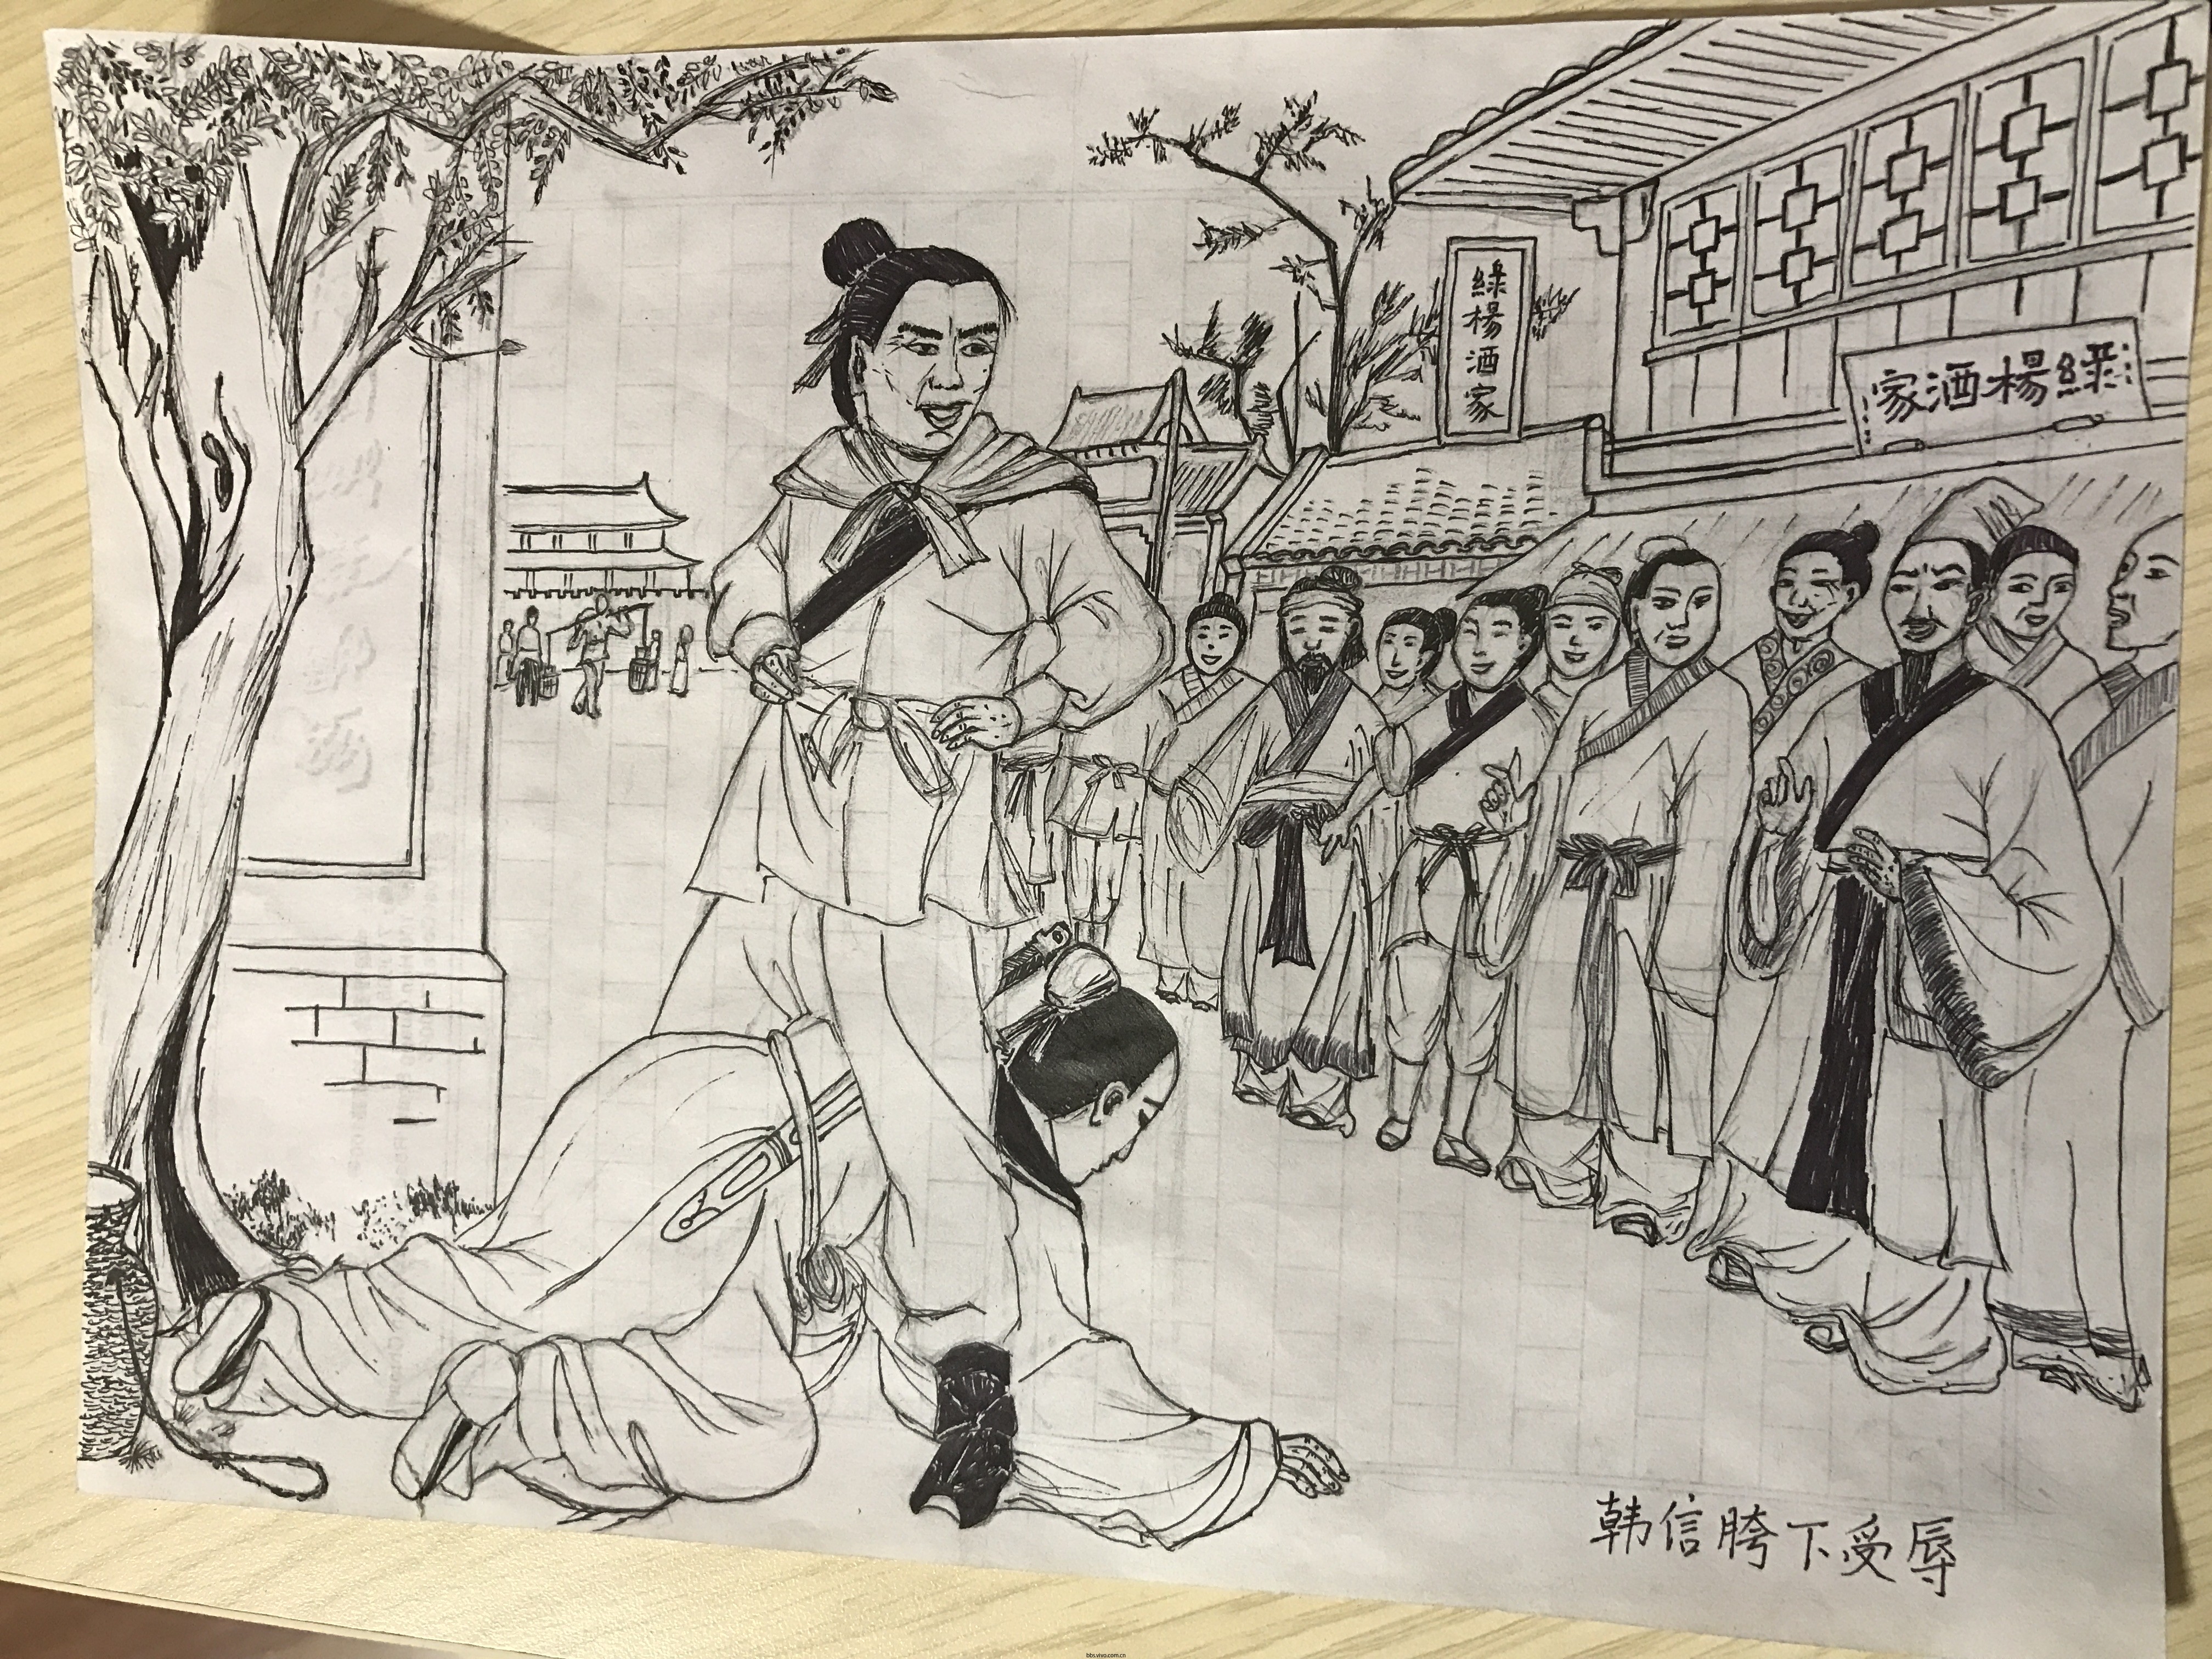 綠楊酒家
綠楊酒家
韩信胯下受辱
bbs.vivo.com.cn